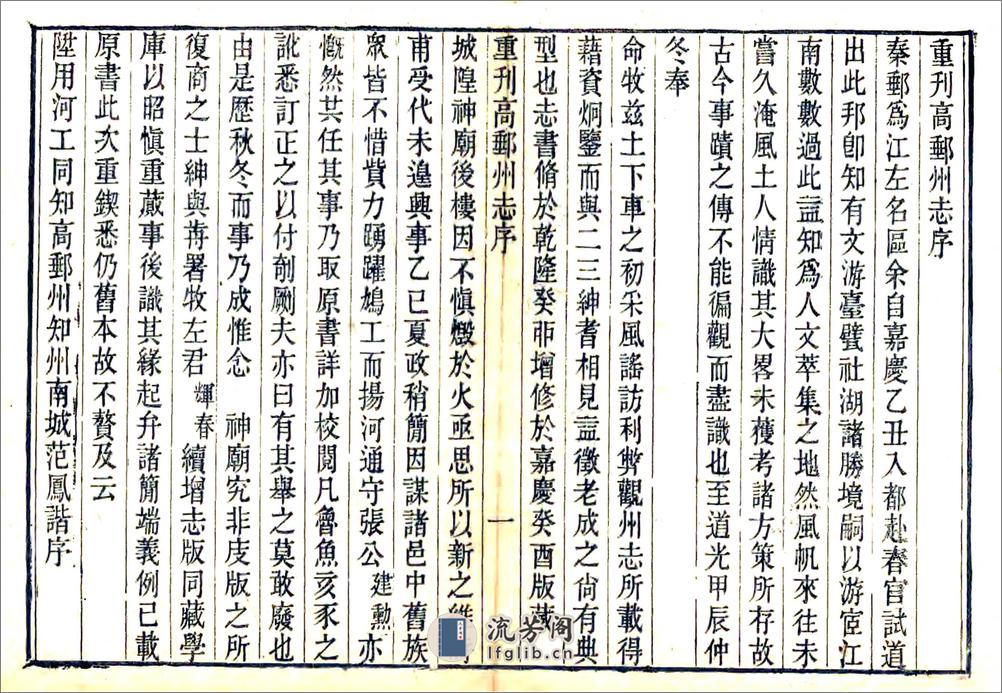 重刊高郵州志序
秦郵爲江左名區余自嘉慶乙丑入都赴春官試道
出此邦卽知有文游臺甓社湖諸勝境嗣以游宦江
南數數過此益知爲人文萃集之地然風帆來往未
嘗久淹風土人情識其大畧未獲考諸方策所存故
古今事蹟之傳不能徧觀而盡識也至道光甲辰仲
冬奉
命牧茲土下車之初采風謠訪利弊觀州志所載得
藉資炯鑒而與二三紳耆相見益徵老成之尙有典
型也志書脩於乾隆癸卯增修於嘉慶癸酉版藏
重刊高郵州志序 一
城隍神廟後樓因不慎燬於火亟思所以新之
甫受代未遑興事乙巳夏政稍簡因謀諸邑中舊族
衆皆不惜貲力踴躍鳩工而揚河通守張公建勳亦
慨然共任其事乃取原書詳加校閱凡魯魚亥豕之
訛悉訂正之以付剞劂夫亦曰有其舉之莫敢廢也
由是歷秋冬而事乃成惟念 神廟究非庋版之所
復商之士紳與前署牧左君輝春續增志版同藏學
庫以昭愼重蕆事後識其緣起弁諸簡端義例已載
原書此次重鍥悉仍舊本故不贅及云
陞用河工同知高郵州知州南城范鳳諧序
流芳阁
lfglib.cn